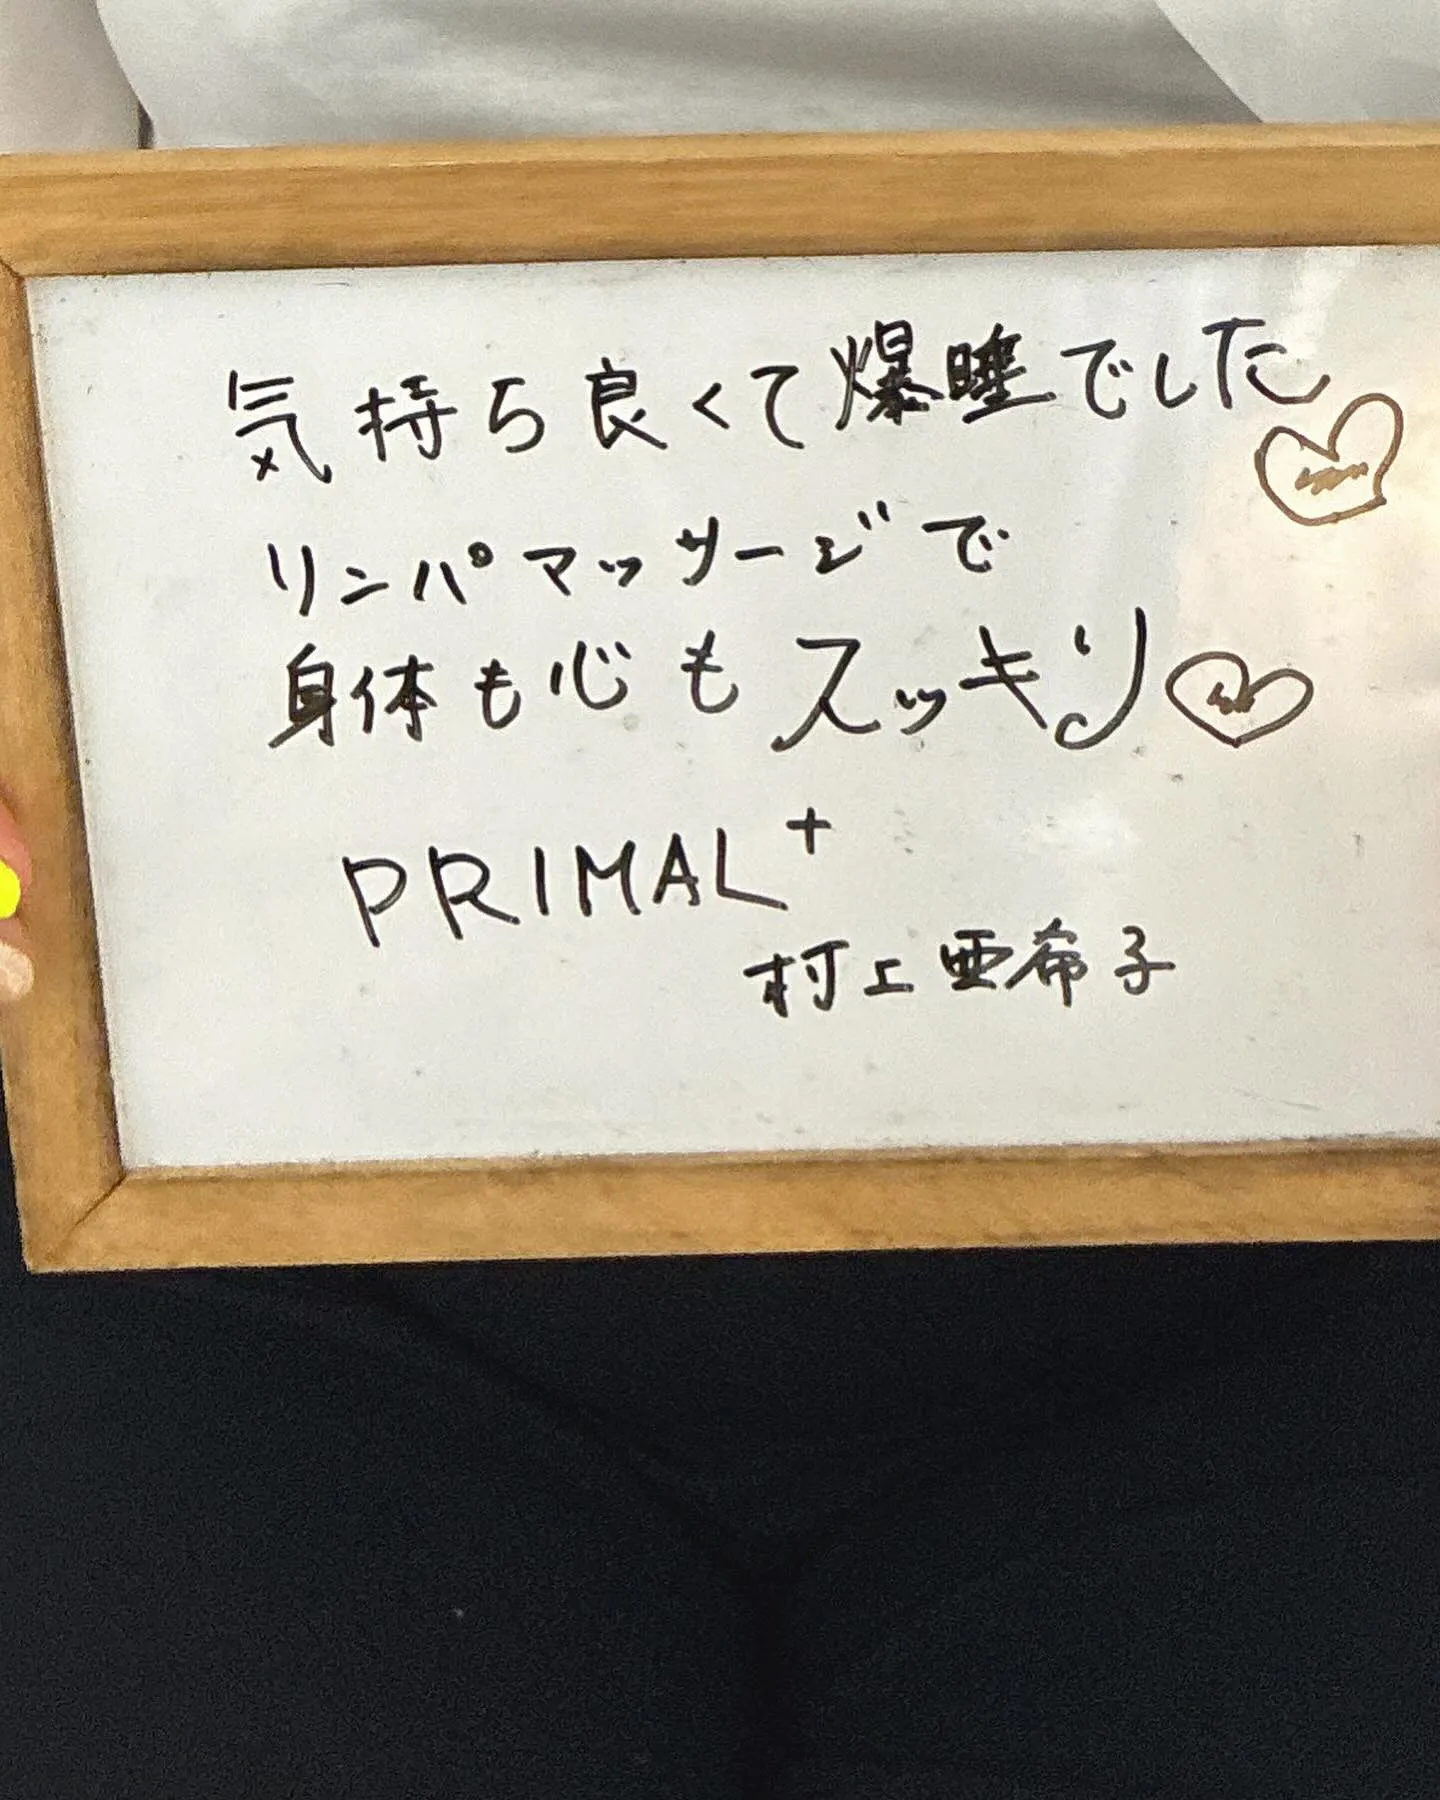 気持ち良くて爆睡でした
リンパマッサージで
身体も心もスッキリ
PRIMAL+
村上亜希子